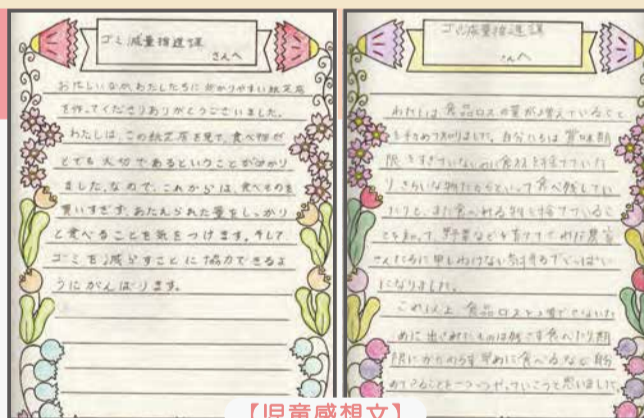 ゴミ減量推進課
さんへ
お忙しいなか、わたしたちに分かりやすい紙芝居
を作ってくださりありがとうございました。
わたしは、この紙芝居を見て、食べ物が
とても大切であるということが分かり
ました。なので、これからは、食べものを
買いすぎず、あたえられた量をしっかり
と食べることを気をつけます。そして
ゴミを減らすことに協力できるよ
うにがんばります。
ゴミ減量推進課
さんへ
わたしは、食品ロスの量が増えていること
自分たちは 賞味期
限をすぎていないのに食材を捨てていた
り、きらいな物だからといって食べ残してい
たりと、まだ食べれる物を捨てているこ
とを知って、野菜などを育ててくれた農家
さんたちに申しわけない気持ちでいっぱい
になりました。
これ以上、食品ロスを増やさないた
めに出されたものは残さず食べたり、期
限にかかわらず早めに食べるなど、自分
のできることを一つ一つやっていこうと思いました。
【児童感想文】